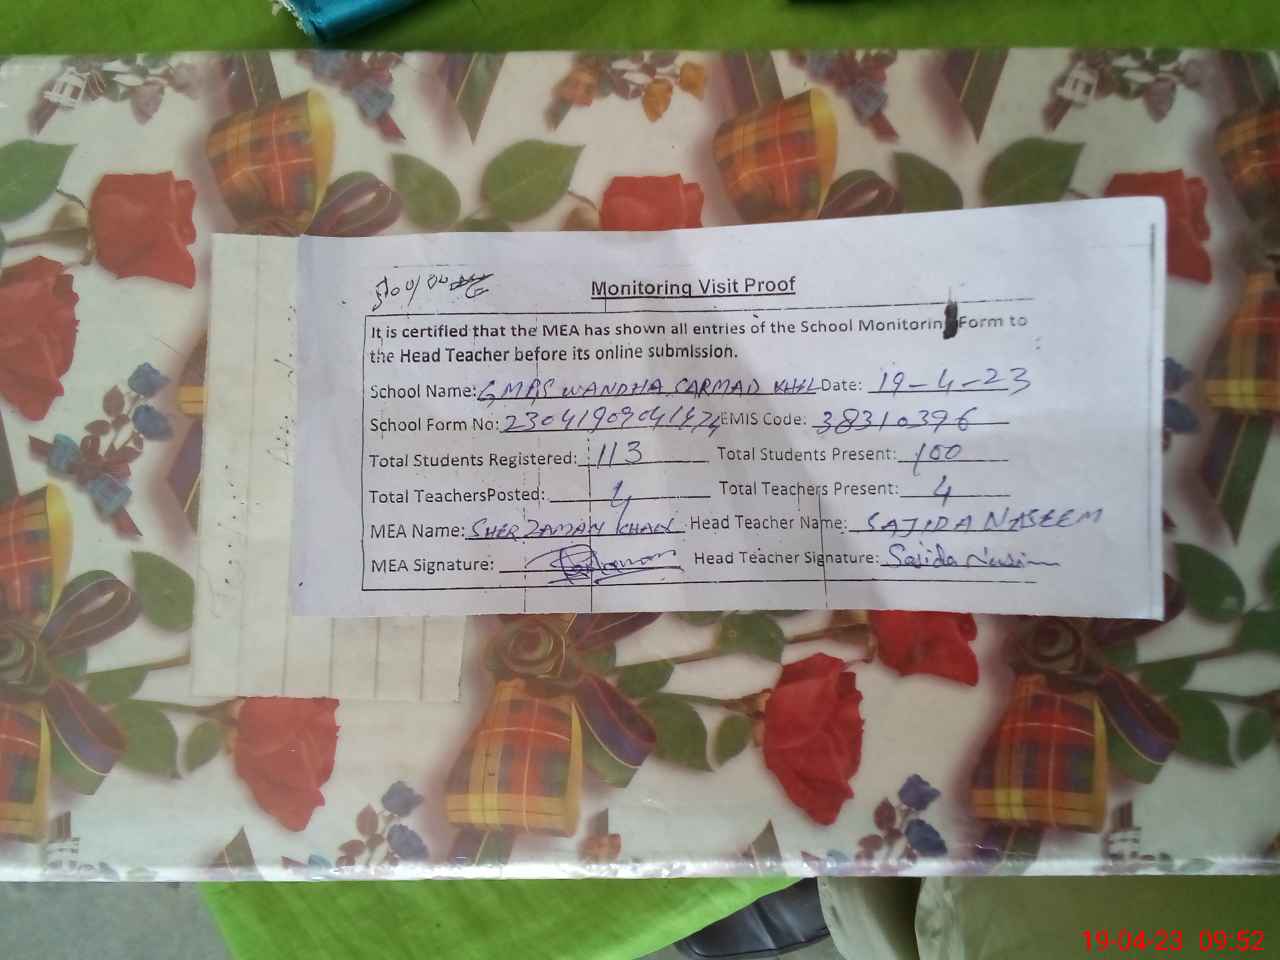 Monitoring Visit Proof
It is certified that the MEA has shown all entries of the School Monitoring Form to
the Head Teacher before its online submission.
School Name: GMPS WANDHA SARMAD KHEL Date: 19-4-23
School Form No: EMIS Code: 38310396
Total Students Registered: 113 Total Students Present: 100
Total TeachersPosted: 4 Total Teachers Present: 4
MEA Name: SHER ZAMAN KHAN Head Teacher Name: SAJIDA NASEEM
MEA Signature: Head Teacher Signature: Sajida Nasim
19-04-23 09:52